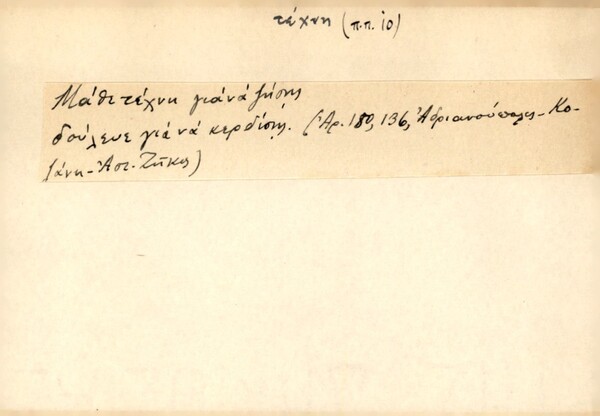 τέχνη (π.π. 10)
Μάθε τέχνη γιὰ νὰ ζήσῃς
δούλευε γιὰ νὰ κερδίσῃς. (Ἀρ. 180, 136, Ἀδριανούπολις - Κο-
ζάνη - Ἀστ. Ζήκος)